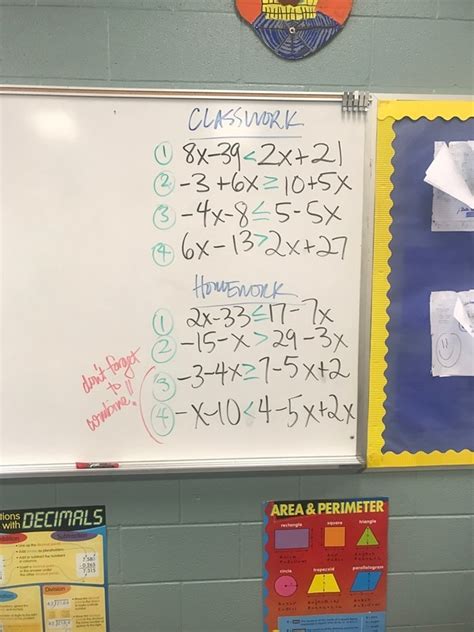 CLASSWORK
① 8x-39<2x+21
② -3+6x≥10+5x
③ -4x-8≤5-5x
④ 6x-13>2x+27
HOMEWORK
① 2x-33≤17-7x
② -15-x>29-3x
③ -3-4x≥7-5x+2
④ -x-10<4-5x+2x
don't forget
to
combine!!
with DECIMALS
Subtraction
Division
AREA & PERIMETER
rectangle
square
triangle
circle
trapezoid
parallelogram